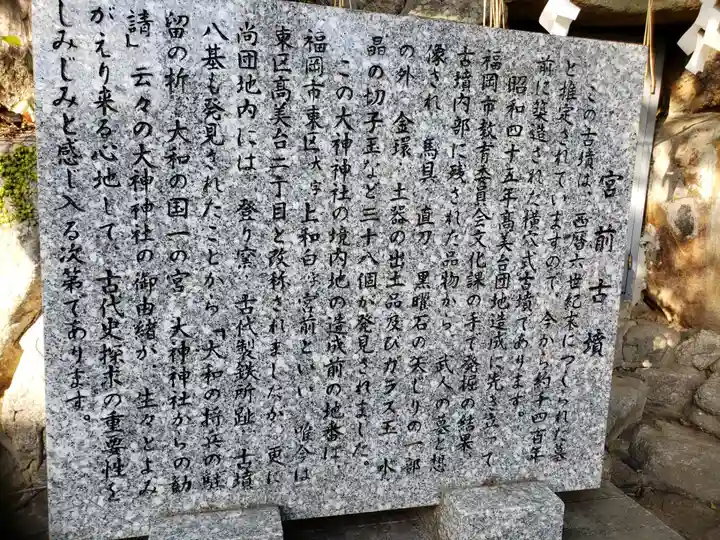 宮前古墳
この古墳は、西暦六世紀末につくられた墓
と推定されていますので、今から約千四百年
前に築造された横穴式古墳であります。
昭和四十五年高美台団地造成に先き立って
福岡市教育委員会文化課の手で発掘の結果
古墳内部に残された品物から、武人の墓と想
像され、馬具、直刀、黒曜石の矢じりの一部
の外、金環、土器の出土品及びガラス玉、水
晶の切子玉など三十八個が発見されました。
この大神神社の境内地の造成前の地番は、
福岡市東区大字上和白字宮前といい、唯今は
東区高美台二丁目と改称されましたが、更に
尚団地内には、登り窯、古代製鉄所趾、古墳
八基も発見されたことから「大和の将兵の駐
留の折、大和の国一の宮、大神神社からの勧
請」云々の大神神社の御由緒が、生々とよみ
がえり来る心地して、古代史探求の重要性を
しみじみと感じ入る次第であります。